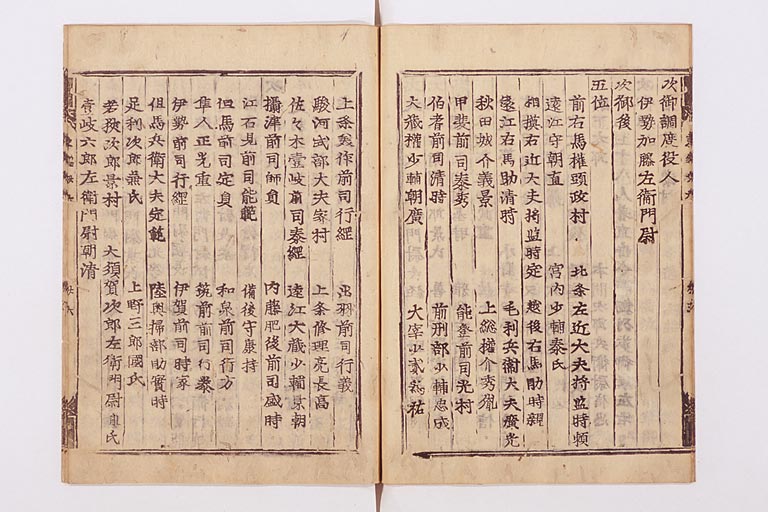 次御調度役人
伊勢加藤左衛門尉
次御後
五位
前右馬権頭政村 北条左近大夫将監時頼
遠江守朝直 宮内少輔泰氏
相摸右近大夫将監時定 越後右馬助時親
遠江右馬助清時 毛利兵衛大夫廣光
秋田城介義景 上総権介秀胤
甲斐前司泰秀 能登前司光村
伯耆前司清時 前刑部少輔忠成
大蔵権少輔朝廣 大宰少貳為佑
上条美作前司行經 出羽前司行義
駿河式部大夫家村 上条修理亮長高
佐々木壹岐前司泰經 遠江大蔵少輔景朝
攝津前司師負 内藤肥後前司盛時
江石見前司能範 備後守康持
但馬前司定員 和泉前司行方
隼人正光重 筑前前司行泰
伊勢前司行經 伊賀前司時家
但馬兵衛大夫定範 陸奥掃部助實時
足利次郎兼氏 上野三郎國氏
若狭次郎景村 大須賀次郎左衛門尉胤氏
壹岐六郎左衛門尉朝清